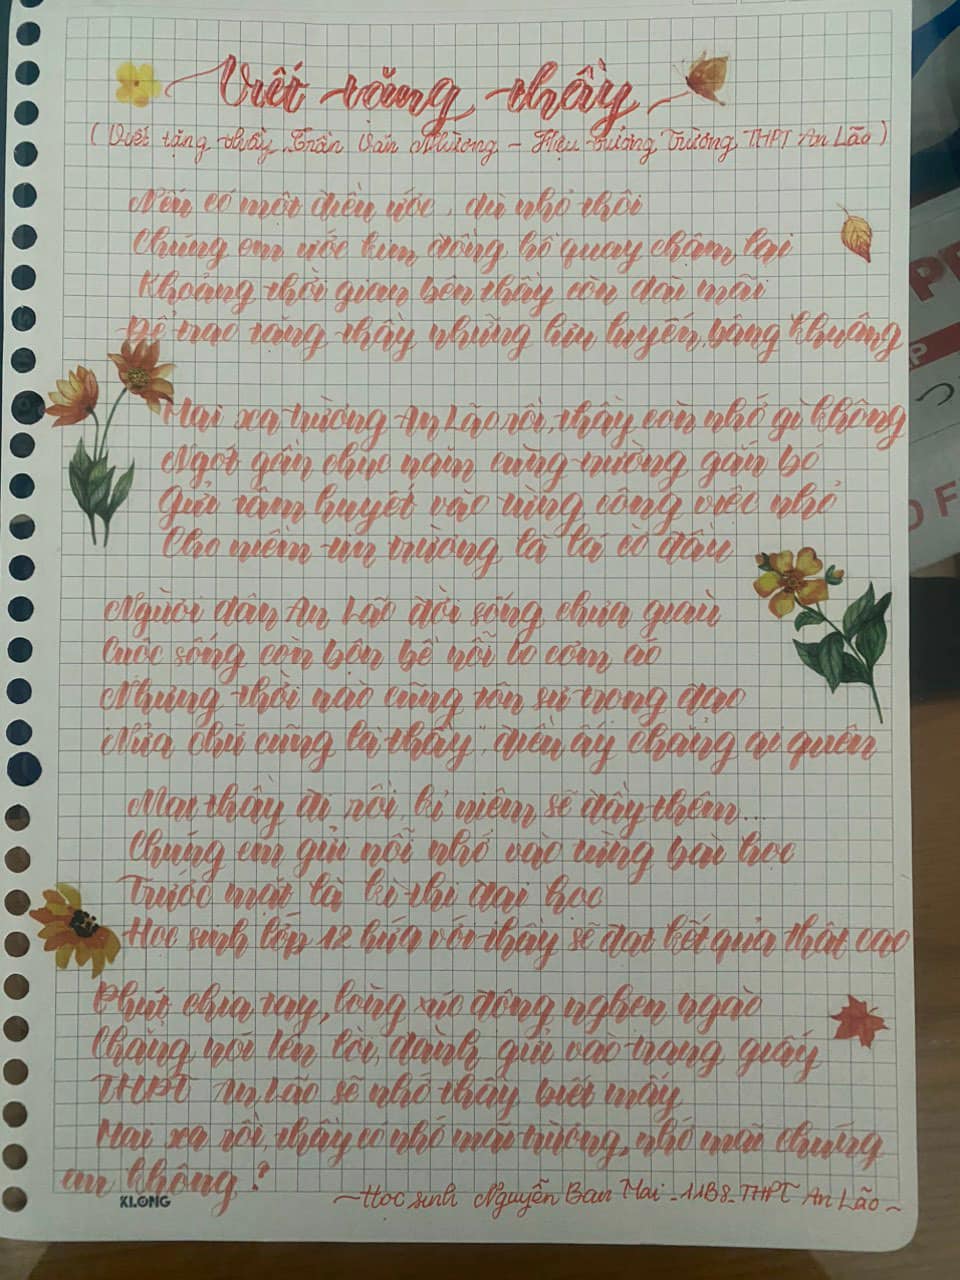 Viết tặng thầy
(Viết tặng thầy Trần Văn Phương - Hiệu trưởng Trường THPT An Lão)
Nếu có một điều ước, dù nhỏ thôi
Chúng em ước kim đồng hồ quay chậm lại
Khoảng thời gian bên thầy còn dài mãi
Để trao tặng thầy những lưu luyến, bâng khuâng
Mai xa trường An Lão rồi, thầy còn nhớ gì không
Ngót gần chục năm cùng trường gắn bó
Gửi tâm huyết vào từng công việc nhỏ
Cho niềm tin trường là lá cờ đầu
Người dân An Lão đời sống chưa giàu
Cuộc sống còn bộn bề nỗi lo cơm áo
Nhưng thời nào cũng tôn sư trọng đạo
"Nửa chữ cũng là thầy", điều ấy chẳng ai quên
Mai thầy đi rồi, kỉ niệm sẽ dày thêm...
Chúng em gửi nỗi nhớ vào từng bài học
Trước mặt là kì thi đại học
Học sinh lớp 12 hứa với thầy sẽ đạt kết quả thật cao
Phút chia tay, lòng xúc động nghẹn ngào
Chẳng nói lên lời, dành gửi vào trang giấy
THPT An Lão sẽ nhớ thầy biết mấy
Mai xa rồi, thầy có nhớ mái trường, nhớ mãi chúng
em không?
KLONG
~Học sinh Nguyễn Ban Mai - 11B8 - THPT An Lão~